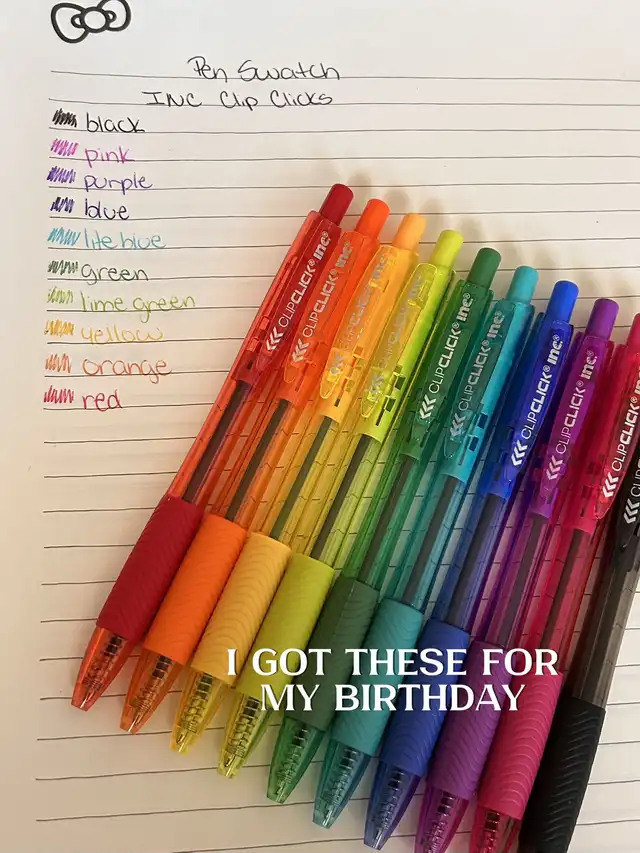 Pen Swatch
INC Clip Clicks
black
pink
purple
blue
lite blue
green
lime green
yellow
orange
red
CLIPCLICK® inc®
CLIPCLICK® inc®
CLIPCLICK® inc®
CLIPCLICK® inc®
CLIPCLICK® inc®
CLIPCLICK® inc®
CLIPCLICK® inc®
CLIPCLICK® inc®
I GOT THESE FOR
MY BIRTHDAY